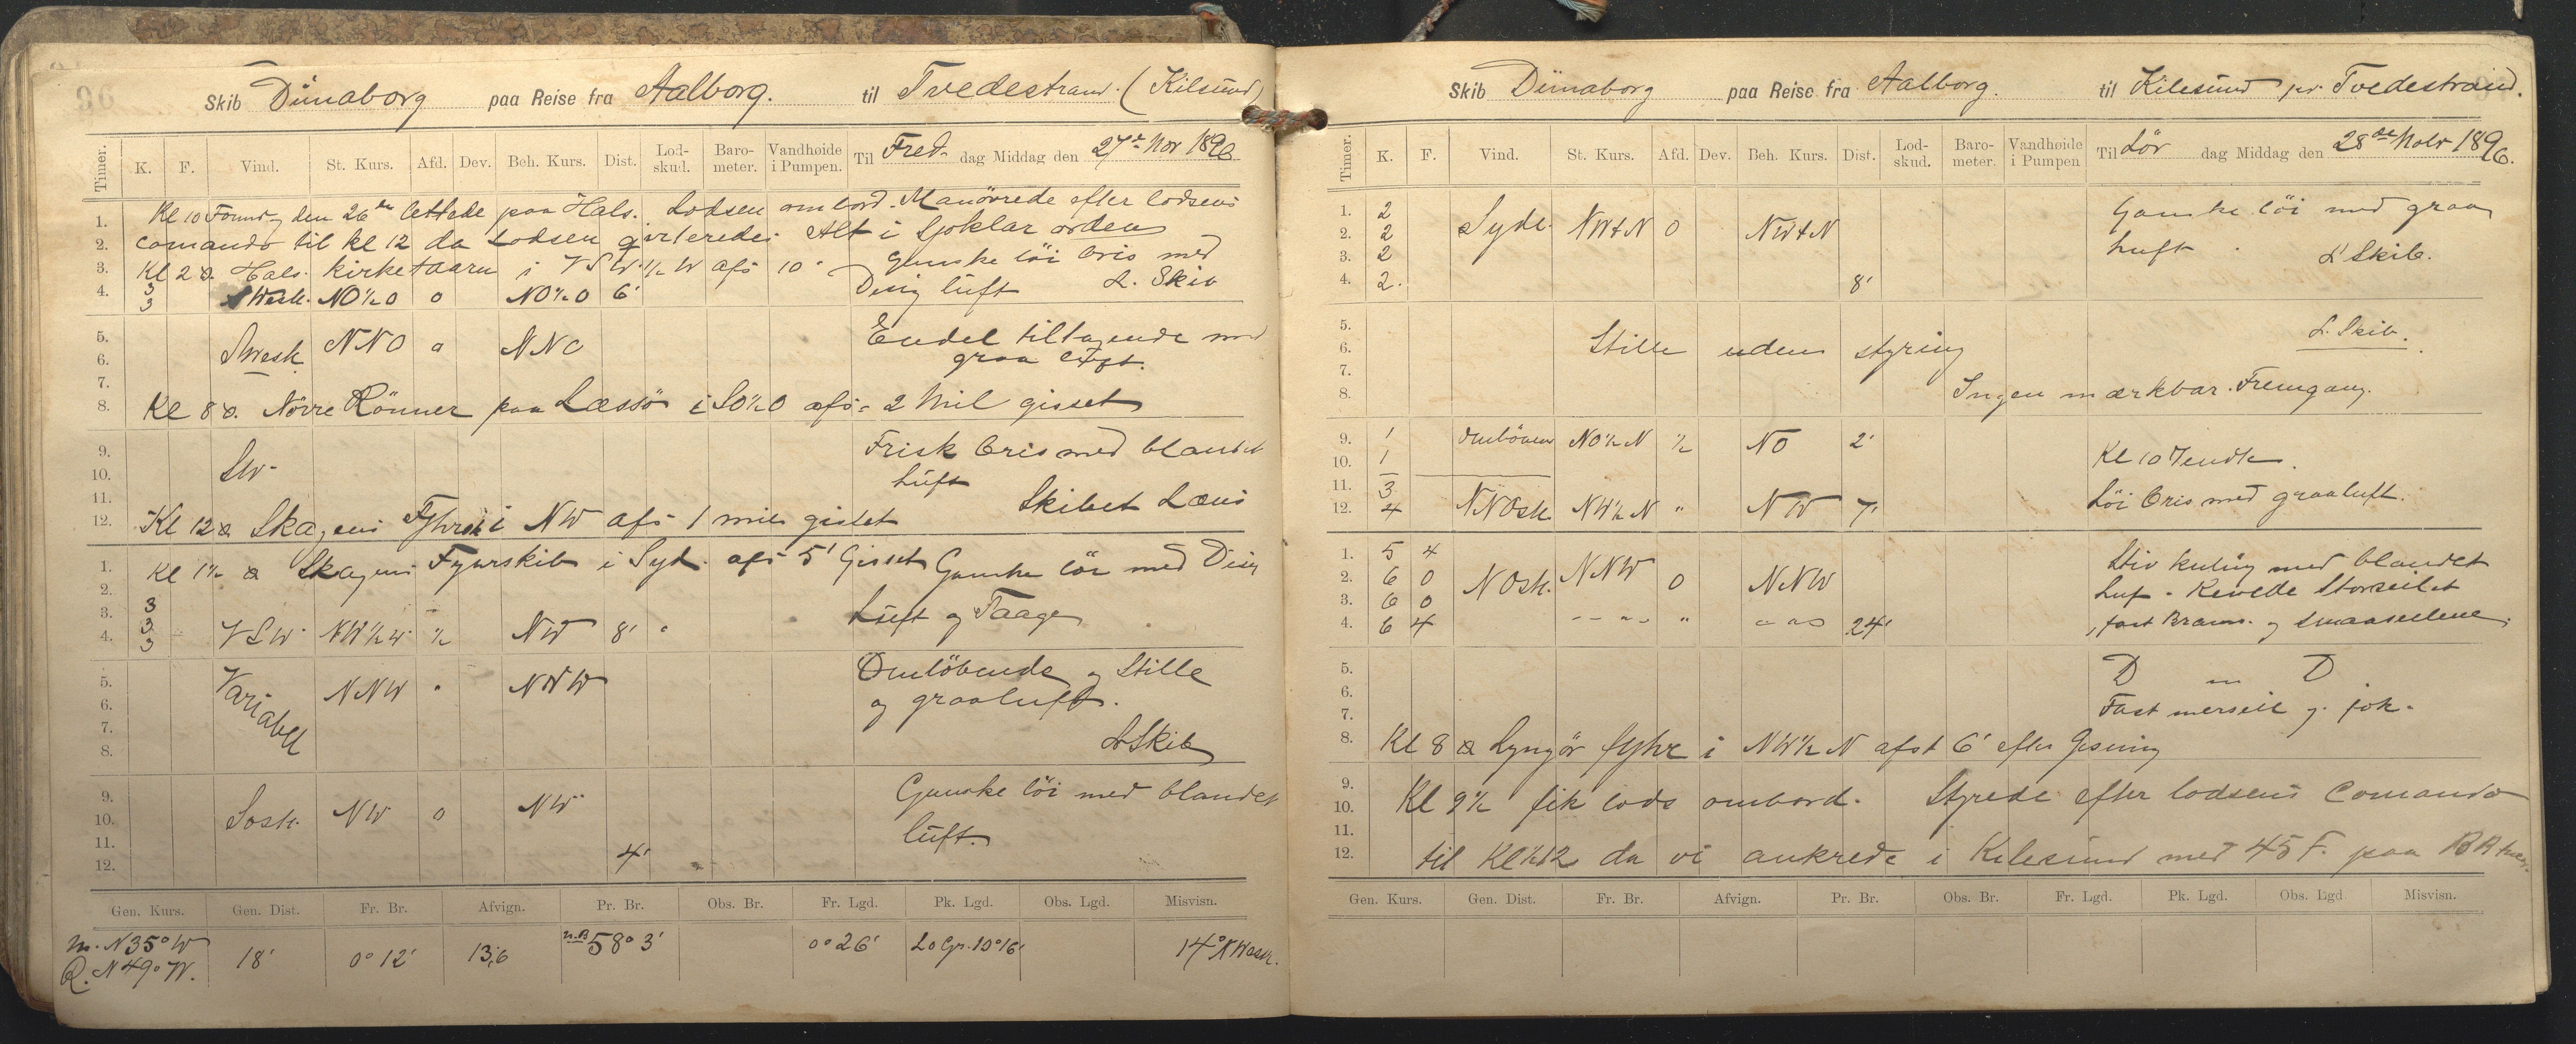 96
Skib Dünaborg paa Reise fra Aalborg. til Tvedestrand. (Kilsund)
Timer. K. F. Vind. St. Kurs. Afd. Dev. Beh. Kurs. Dist. Lod-skud. Baro-meter. Vandhøide i Pumpen. Til Fred- dag Middag den 27de Nov 1896
1. Kl 10 Formdg den 26de lettede paa Hals. Lodsen ombord. Manövrede efter lodsens
2. Comando til kl 12 da Lodsen qvitteredes Alt i Sjöklar orden
3. Kl 2 a. Hals. kirketaarn i VSW 1/2 W afs 10' Ganske löi bris med
4. 3 3 SWestl. NO 1/2 O 0 NO 1/2 O 6' Disig luft L. Skib
5. Endel tiltagende med
6. SWestl. NNO 0 NNO graa luft.
7.
8. Kl 8 a. Nörre Rönner paa Læssö i SO 1/2 O afs = 2 Mil gisset
9. Frisk bris med blandet
10. SW. Luft
11. Skibet Læns
12. Kl 12 a Skagens Fyhrskib i NW afs 1 mils gisset
1. Kl 1 1/2 a Skagens Fyurskib i Syd. afs 5' Gisset Ganske löi med Disig
2.
3. 3 Luft og Taage
4. 3 3 VSW. NW 1/2 W. 1/2 NW 8'
5. Omlöbende og Stille
6. Variabel NNW " NNW og graaluft.
7.
8. L Skib
9. Ganske löi med blandet
10. Sostl. NW 0 NW
11. luft.
12. 4'
Gen. Kurs. Gen. Dist. Fr. Br. Afvign. Pr. Br. Obs. Br. Fr. Lgd. Pk. Lgd. Obs. Lgd. Misvisn.
m. N 35° W 18' 0° 12' 13,6 n.B 58° 3' 0° 26' L o Gr. 10° 16' 14° N Westl.
R. N 49° W.
Skib Dünaborg paa Reise fra Aalborg. til Kilesund pr. Tvedestrand.
Timer. K. F. Vind. St. Kurs. Afd. Dev. Beh. Kurs. Dist. Lod-skud. Baro-meter. Vandhøide i Pumpen Til Lör dag Middag den 28de Nobr 1896.
1. 2 Ganske löi med graa
2. 2 Sydl. NWtN 0 NWtN
3. 2 luft. L Skib.
4. 2. 8'
5. L. Skib.
6. Stille uden styring
7.
8. Ingen mærkbar Fremgang.
9. 1 Omlöbende NO 1/2 N 1/2 NO 2'
10. 1 Kl 10 Vendte.
11. 3
12. 4 NNOstl. NW 1/2 N " NW 7' Löi bris med graaluft.
1. 5 4 Stiv kuling med blandet
2. 6 0 NOstl. NNW 0 NNW
3. 6 0 Luf. Revede Storseilet
4. 6 4 " " " " 24' , fast Bram. og smaaseilene.
5. D " D
6.
7. Fast mersseil g. fok.
8. Kl 8 a Lyngör fyhr i NW 1/2 N afst 6' efter Gisning
9.
10. Kl 9 1/2 fik lods ombord. Styrede efter lodsens Comando
11.
12. til Kl 1/2 12 da vi ankrede i Kilesund med 45 F. paa BB
Gen. Kurs. Gen. Dist. Fr. Br. Afvign. Pr. Br. Obs. Br. Fr. Lgd. Pk. Lgd. Obs. Lgd Misvisn.